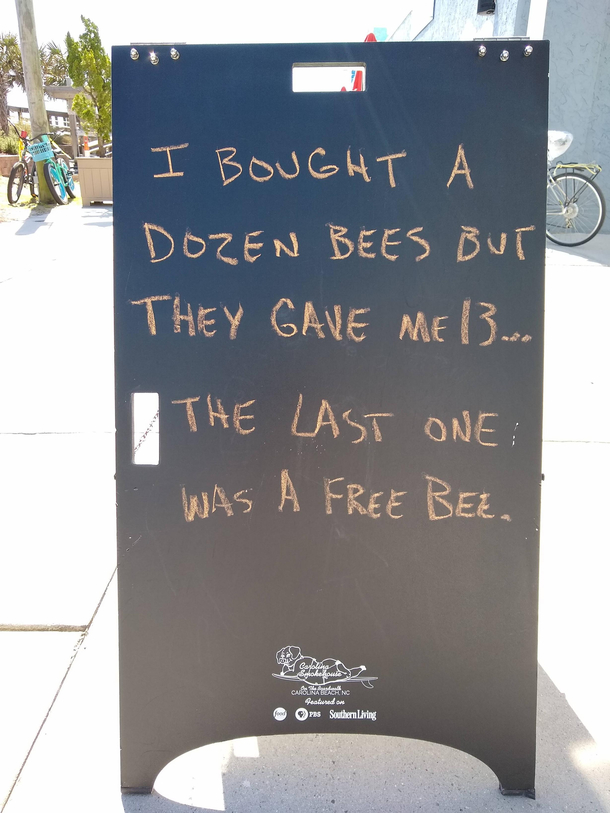 I BOUGHT A
DOZEN BEES BUT
THEY GAVE ME 13...
THE LAST ONE
WAS A FREE BEE.
Carolina
Smokehouse
On The Boardwalk
CAROLINA BEACH, NC
Featured on
food PBS Southern Living